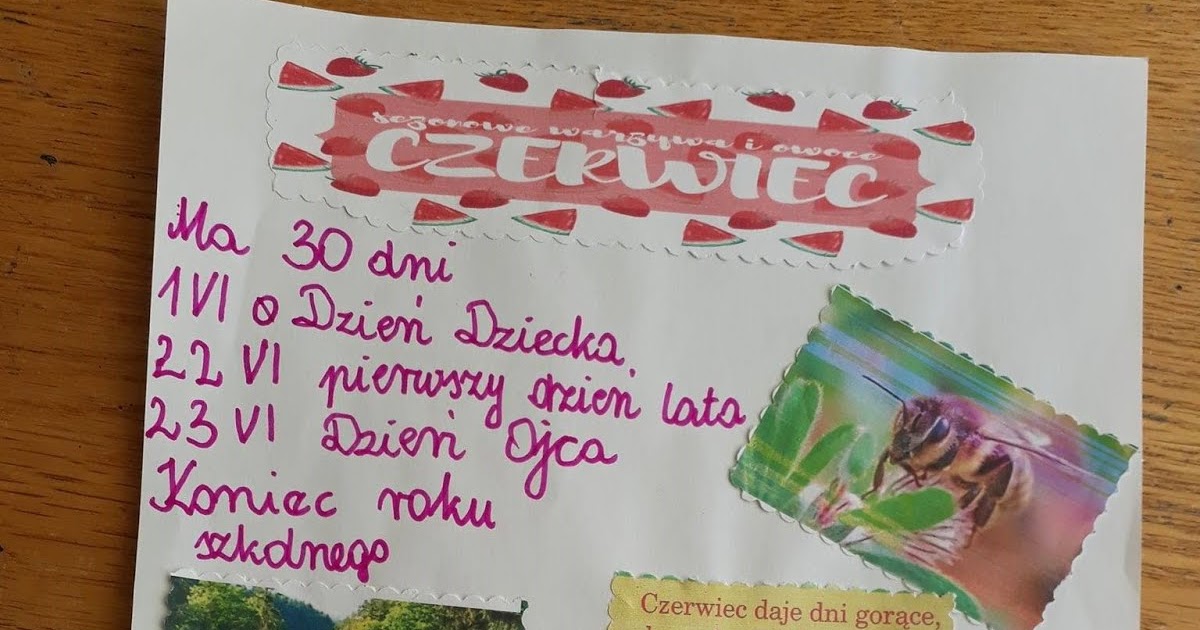 sezonowe warzywa i owoce
CZERWIEC
Ma 30 dni
1 VI Dzień Dziecka
22 VI pierwszy dzień lata
23 VI Dzień Ojca
Koniec roku
szkolnego
Czerwiec daje dni gorące,